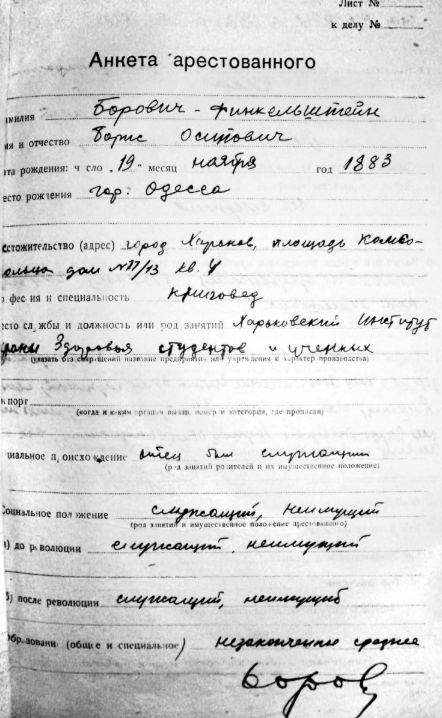 Лист №
к делу №
Анкета арестованного
амилия Борович - Финкельштейн
ия и отчество Борис Осипович
ата рождения: ч сло „19" месяц ноября год 1883
есто рождения гор: Одесса
естожительство (адрес) город Харьков, площадь Комсо-
мольца дом №17/13 кв. 4
фес ия и специальность книговед
есто сл жбы и должность или род занятий Харьковский Институт
раны Здоровья студентов и ученных
(указать без сокращений название предприятия или учреждения и характер производства)
порт
(когда и каким органом выдан, номер и категория, где прописан)
циальное п оисхо дение отец был служащим
(р д занятий родителей и их имущественное положение)
Социальное пол жение служащий, неимущий
(род занятий и имущественное положение арестованного)
) до р волюции служащий, неимущий
б) после революции служащий, неимущий
Обр зовани (общее и специальное) незаконченное среднее
Боров